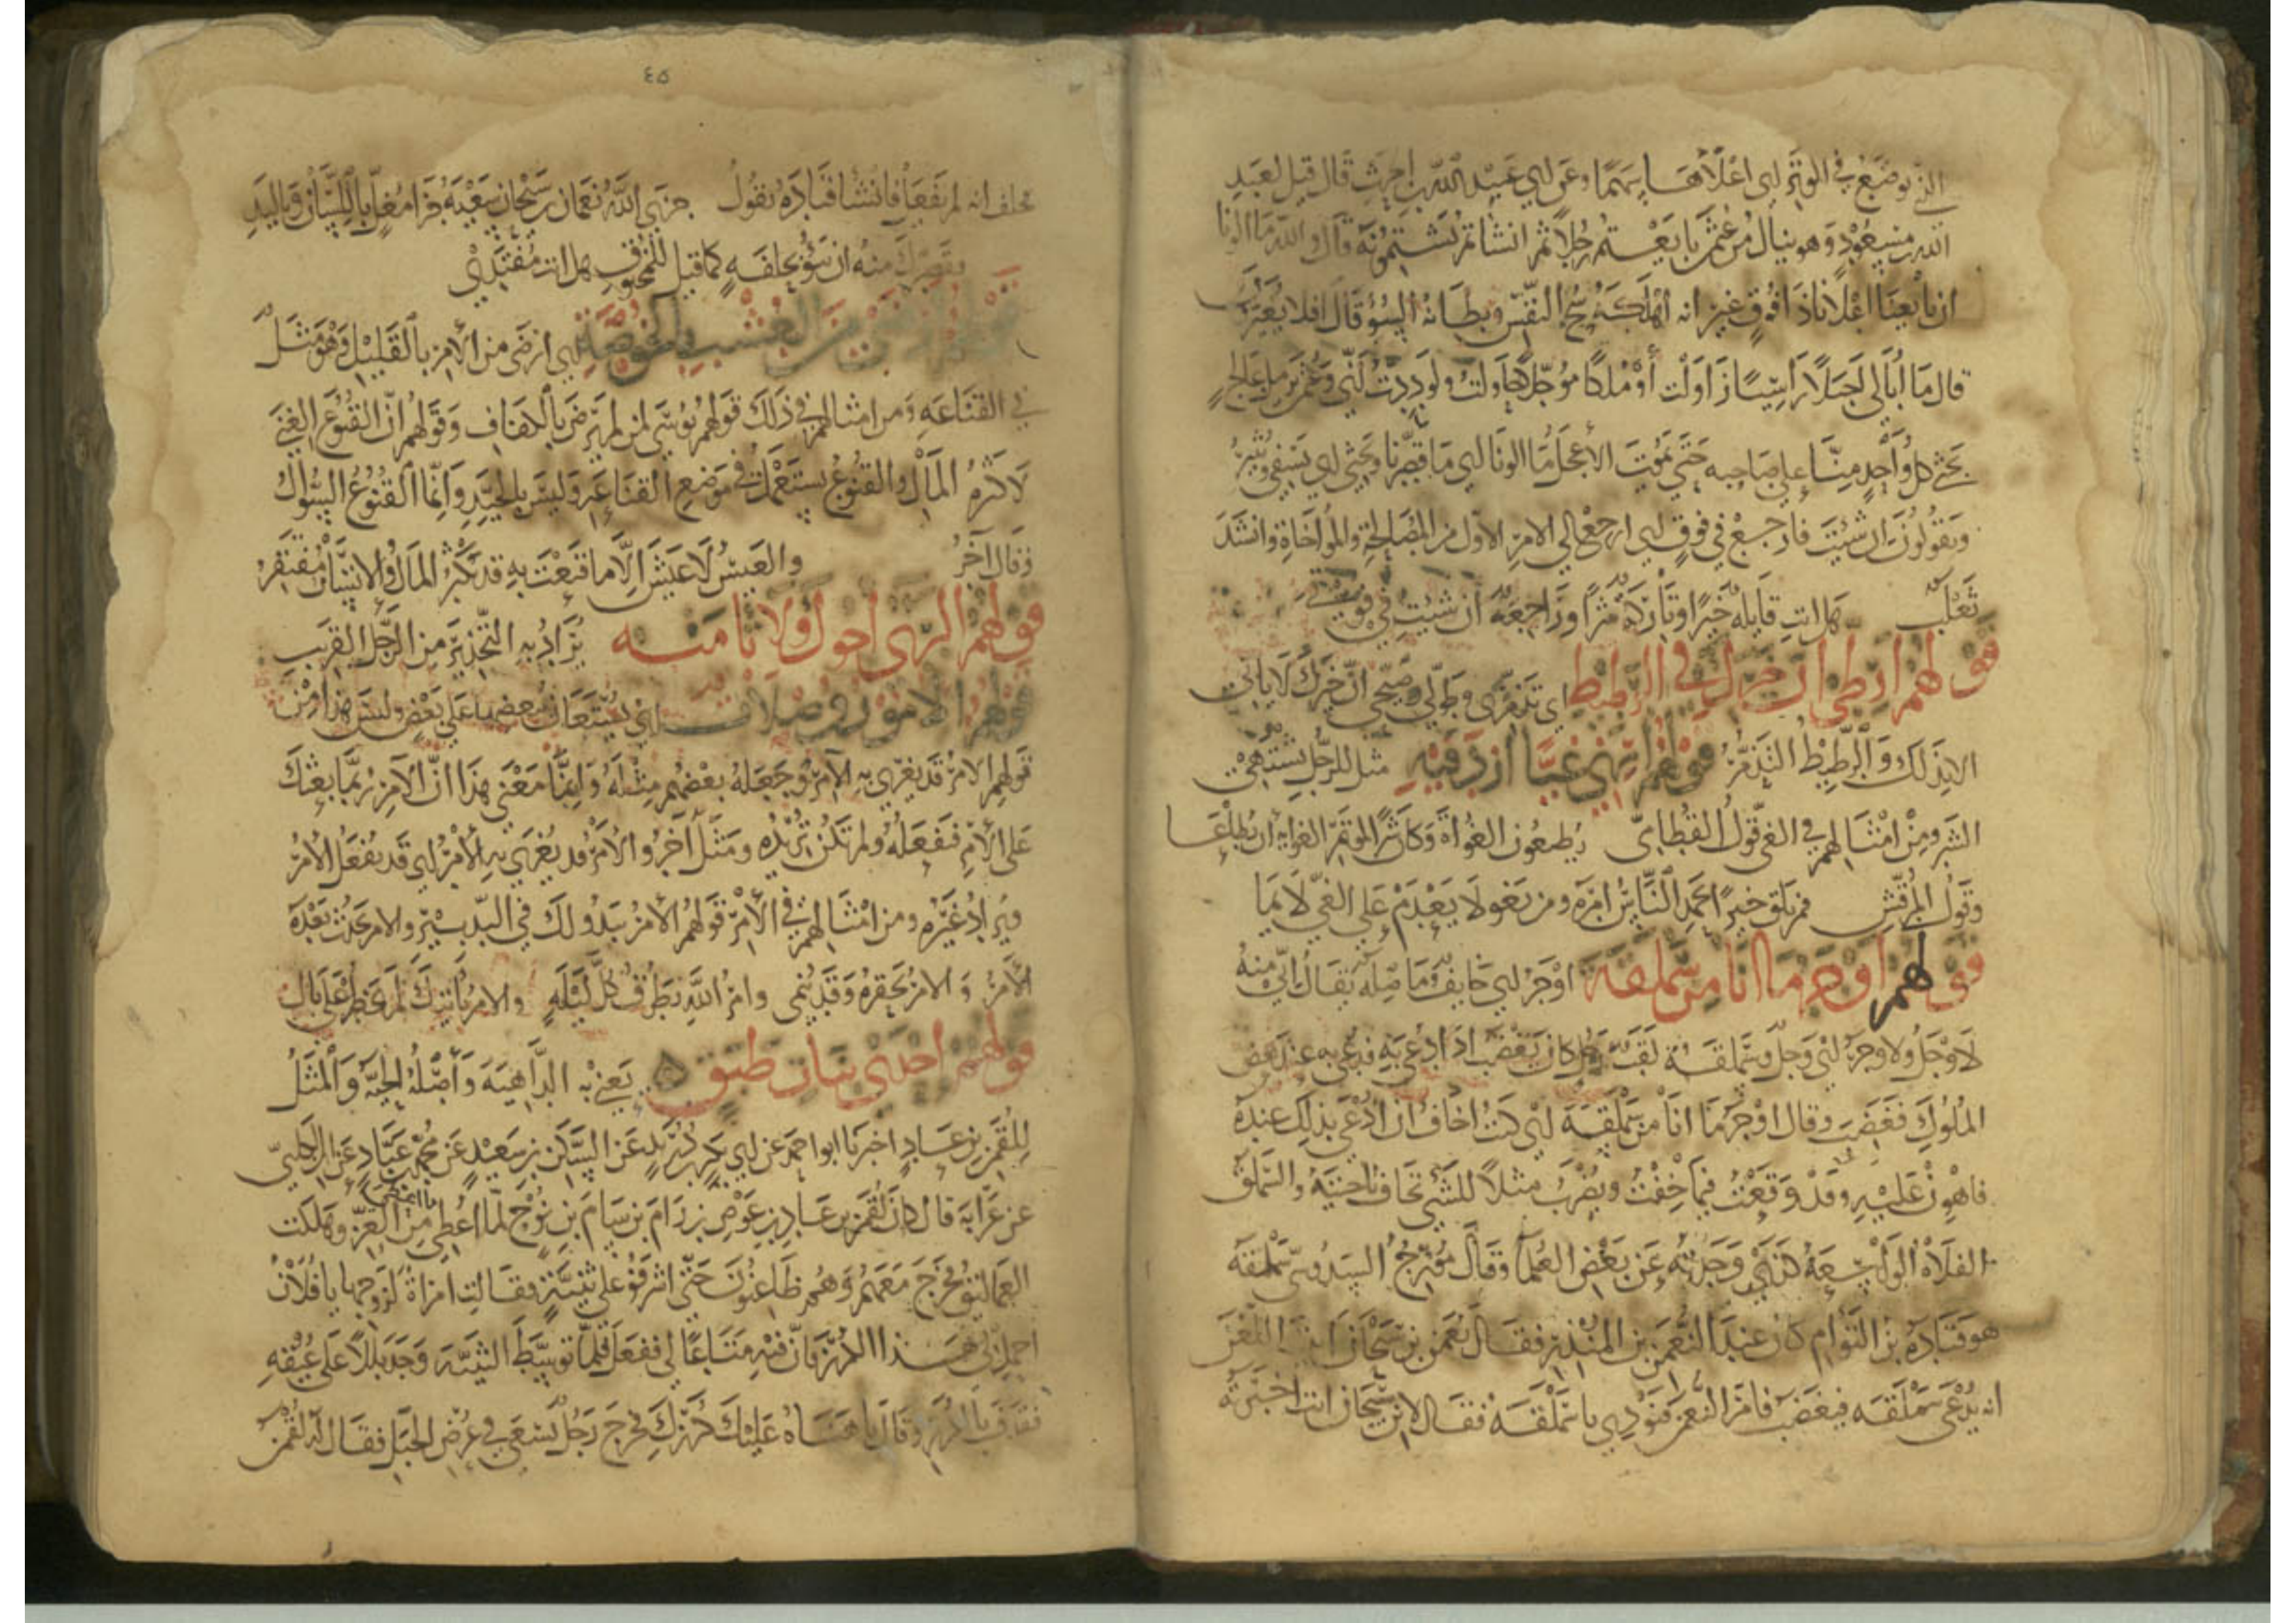 الذي يوضع في الوتر اي اعلاها سهما وعن ابي عبيد الله بن الحرث قال قيل لعبد
الله بن مسعود وهو ينال من عثمن بايعتم رجلا ثم انشاتم تشتمونه قال والله ما الونا
ان بايعنا اعلانا ذا فوق غير انه اهلكه شح النفس وبطانة السوء قال افلا
قال ما ابالي اجبلا راسيا زاولت او ملكا مؤجلا حاولت ولوددت اني وعثمن برمل عالج
يحثي كل واحد منا على صاحبه حتى يموت الاعجل ما الونا اي ما قصرنا ويحثي اي يسفي
ويقولون ان شئت فارجع في فوق اي ارجع الى الامر الاول من المصالحة والمواخاة وانشد
ثعلب هل انت قايلة خيرا وتاركة شرا وراجعة ان شئت في فوقي
قولهم ارطي ان خيرك في الرطيط اي وصيحي ان خيرك لا ياتي
الا بذلك والرطيط قولهم مثل للرجل يشتهي
الشر ومن امثالهم في الغي قول القطامي يطيعون الغواة وكان شرا لموتمر الغواية ان يطاعا
وقول المرقش فمن يلق خيرا يحمد الناس امره ومن يغو لا يعدم على الغي لايما
قولهم اوجر ما انا من سملقة اوجر اي خايف وما صلة يقال اني منه
لاوجل ولاوجر اي وجل وسملقة لقب رجل كان يغضب اذا دعي به فدعي به عند بعض
الملوك فغضب وقال اوجر ما انا من سملقة اي كنت اخاف ان ادعى بذلك عنده
فاهون عليه وقد وقعت فيما خفت ويضرب مثلا للشي تخاف ناحيته والسملق
الفلاة الواسعة كذى وجدته عن بعض العلما وقال مؤرج السدوسي سملقة
هو قتادة بن التوام كان عند النعمن بن المنذر فقال نعمن بن سيحان
انه يدعى سملقة فيغضب فامر النعمن فنودي يا سملقة فقال لابن سيحان انت اخبرته
٤٥
فحلف انه لم يفعل فانشا قتادة يقول جزى الله نعمان بن سيحان سعيه جزا مغل باللسان وباليد
بقصرك منه ان يبوء بحلفه كما قيل للمخنوق هل انت مفتدي
قولهم من العشب بالخوصة اي ارضى من الامر بالقليل وهو مثل
في القناعة ومن امثالهم في ذلك قولهم بؤسى لمن لم يرض بالكفاف وقولهم ان القنوع الغنى
لا كثرة المال والقنوع يستعمل في موضع القناعة وليس بالجيد وانما القنوع السؤال
وقال آخر والعيش لا عيش الا ما قنعت به قد يكثر المال والانسان مفتقر
قولهم الرهى اخوك ولا تامنه يراد به التحذير من الرجل القريب
قولهم الامور وصلات اي يستعان ببعضها على بعض وليس هذا من
قولهم الامر قد يغرى به الامر وجعله بعضهم مثله وانما معنى هذا ان الامر ربما بعثك
على الامر ففعلته ولم تكن تريده ومثل آخر والامر قد يغرى به الامر اي قد يفعل الامر
ويراد غيره ومن امثالهم في الامر قولهم الامر يبدو لك في التدبر والامر يحدث بعده
الامر والامر تحقره وقد ينمي وامر الله يطرق كل ليلة والامر ياتيك لم يخطر على بال
قولهم احدى بنات طبق يعني به الداهية واصله الحية والمثل
للقمن بن عاد اخبرنا ابو احمد عن ابي بكر بن دريد عن السكن بن سعيد عن محمد بن عباد عن ابن الكلبي
عن عرابة قال كان لقمن بن عاد بن عوص بن ارام بن سام بن نوح لما اعطي ما اعطي من العز وهلكت
العماليق خرج معهم وهم ظاعنون حتى اشرفو على ثنية فقالت امراة لزوجها يا فلان
احمل لي هذا الكرز فان فيه متاعا لي ففعل فلما توسط الثنية وجد بللا على عنقه
فقذف بالكرز وقال يا هنتاه عليك كرزك فخرج رجل يسعى في عرض الجبل فقال له لقمن